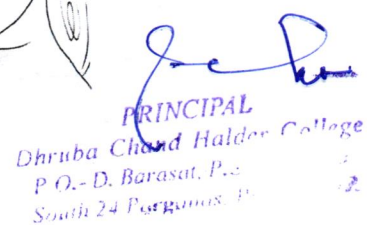 PRINCIPAL
Dhruba Chand Halder College
P.O.- D. Barasat,
South 24 Parganas,